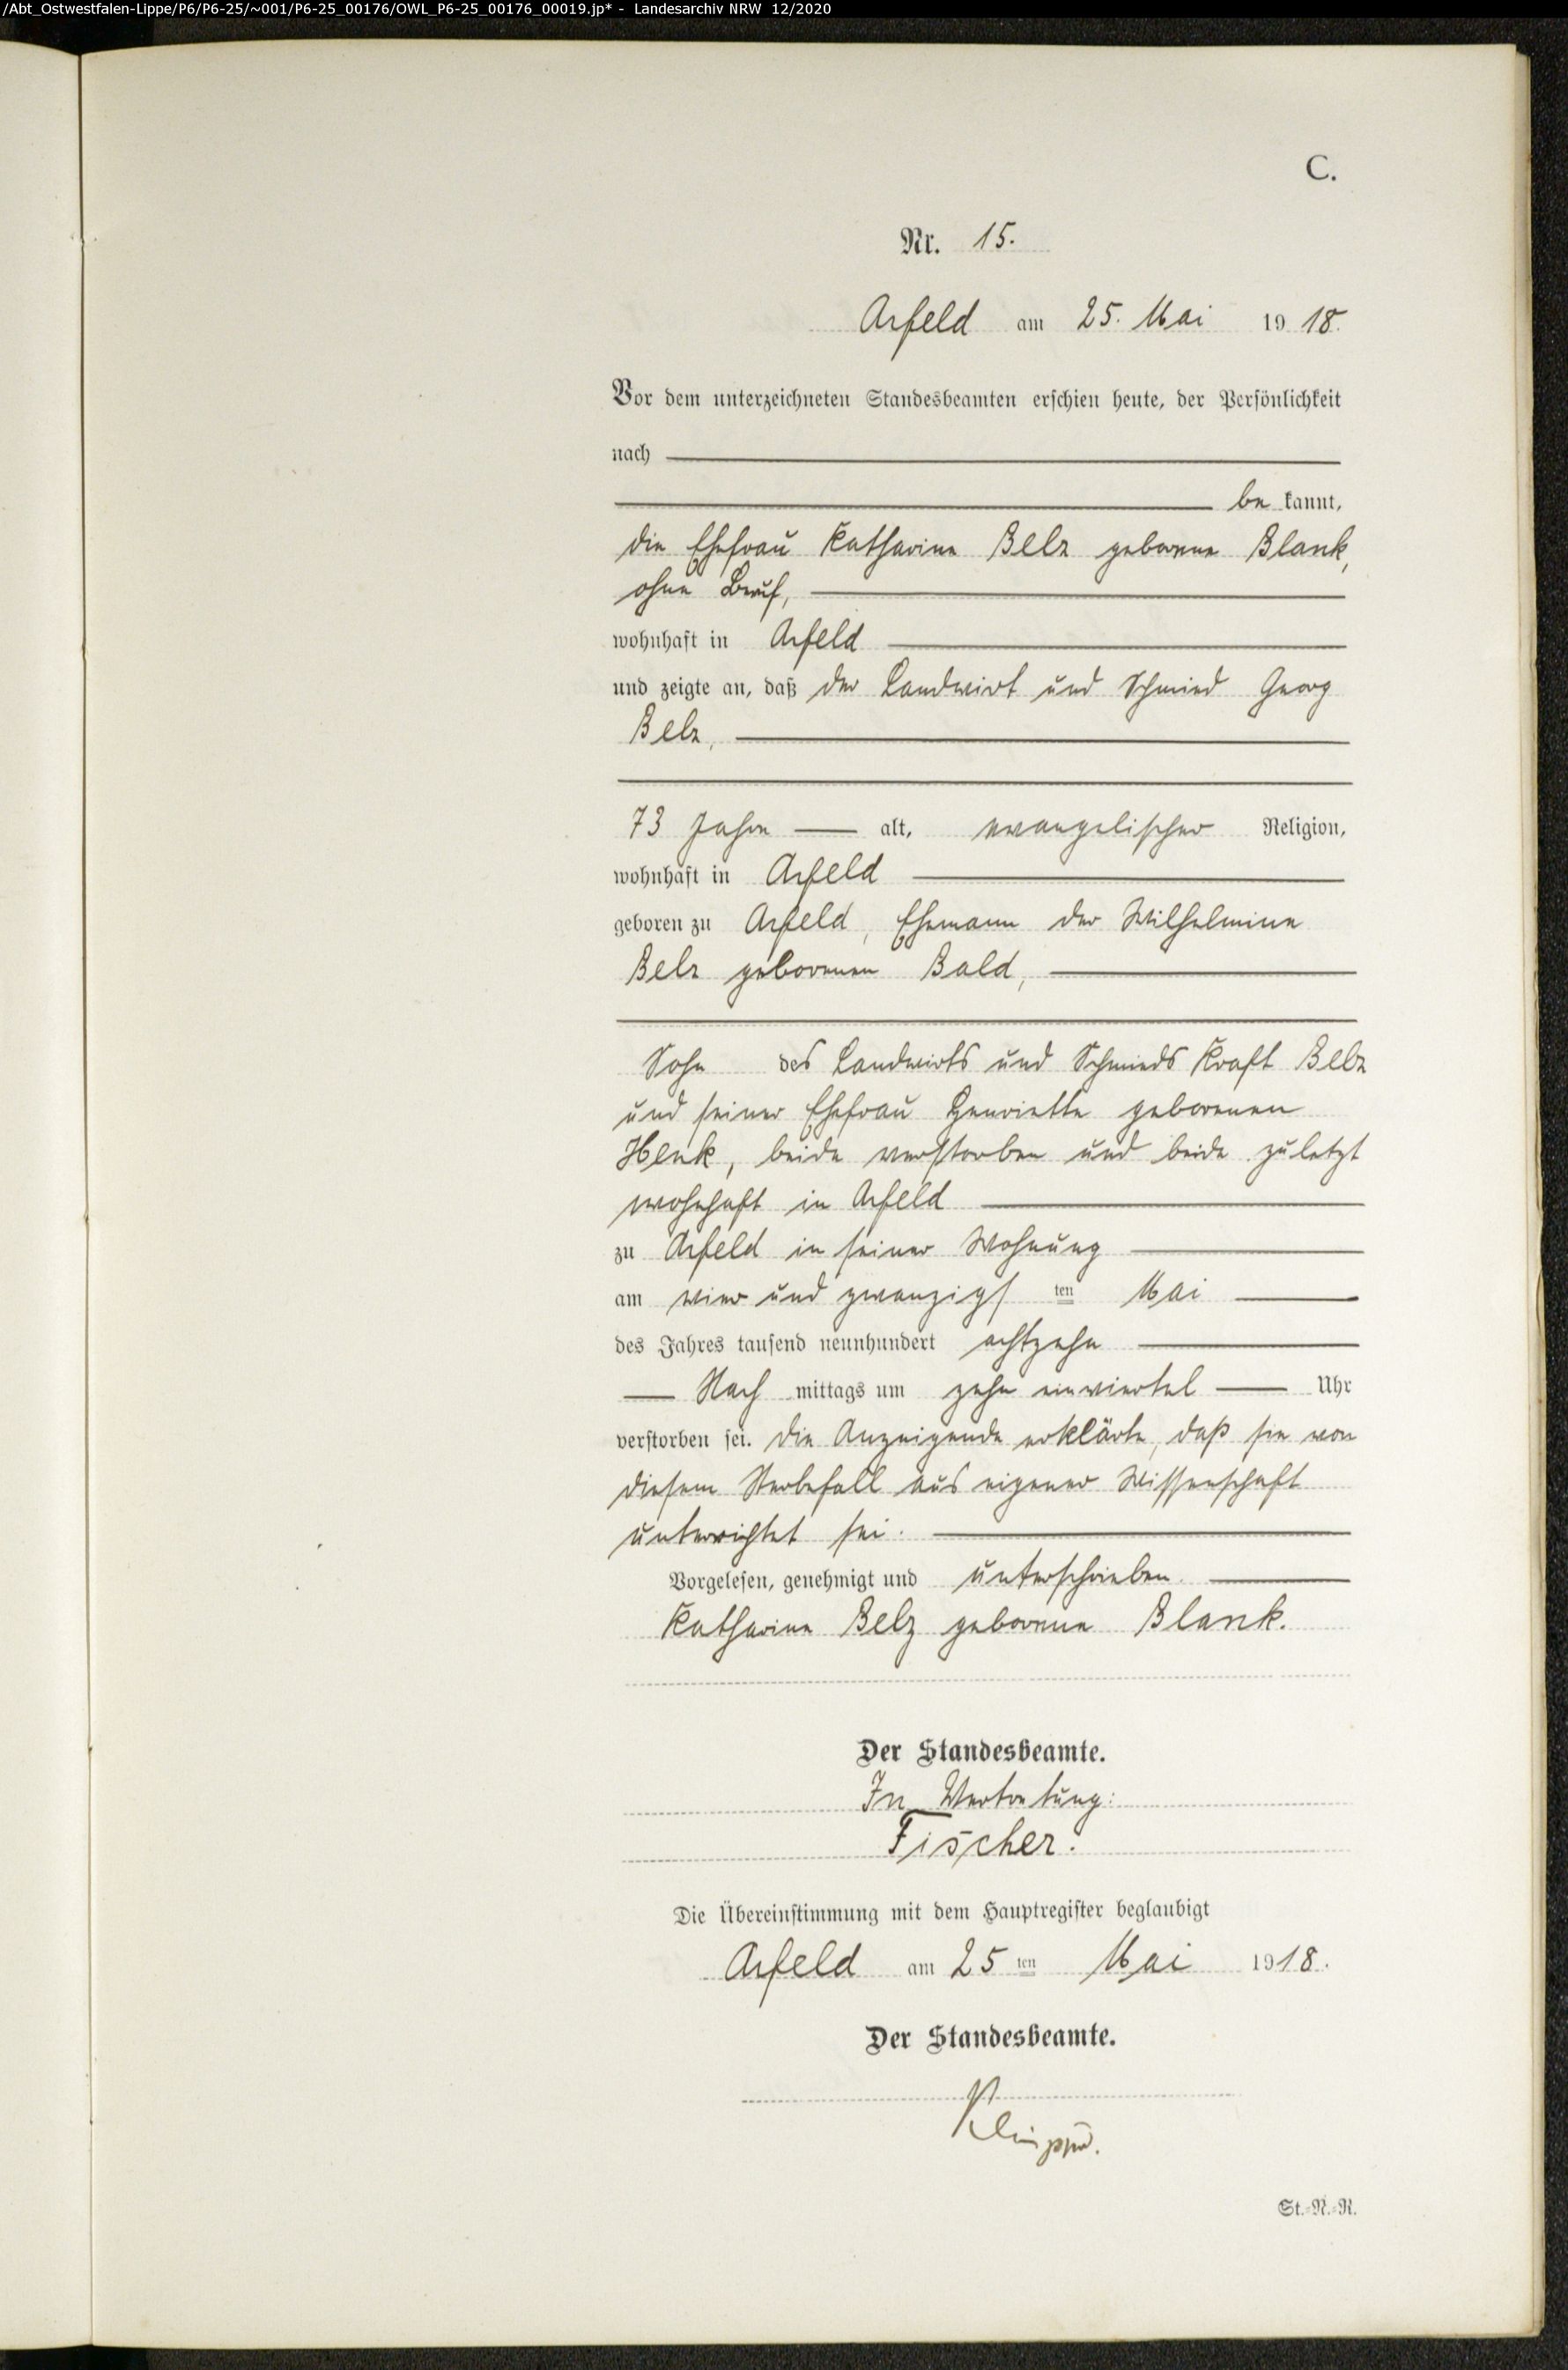 /Abt_Ostwestfalen-Lippe/P6/P6-25/~001/P6-25_00176/OWL_P6-25_00176_00019.jp* - Landesarchiv NRW 12/2020
C.
Nr. 15.
Arfeld am 25. Mai 1918.
Vor dem unterzeichneten Standesbeamten erschien heute, der Persönlichkeit
nach
bekannt,
die Ehefrau Katharine Belz geborene Blank,
ohne Beruf,
wohnhaft in Arfeld
und zeigte an, daß der Landwirt und Schmied Georg
Belz,
73 Jahre alt, evangelischer Religion,
wohnhaft in Arfeld
geboren zu Arfeld, Ehemann der Wilhelmine
Belz geborenen Bald,
Sohn des Landwirts und Schmieds Kraft Belz
und seiner Ehefrau Henriette geborenen
Henk, beide verstorben und beide zuletzt
wohnhaft in Arfeld
zu Arfeld in seiner Wohnung
am vier und zwanzigsten Mai
des Jahres tausend neunhundert achtzehn
Nachmittags um zehn einviertel Uhr
verstorben sei. Die Anzeigende erklärte, daß sie von
diesem Sterbefall aus eigener Wissenschaft
unterrichtet sei.
Vorgelesen, genehmigt und unterschrieben.
Katharine Belz geborene Blank.
Der Standesbeamte.
In Vertretung:
Fischer.
Die Übereinstimmung mit dem Hauptregister beglaubigt
Arfeld am 25ten Mai 1918.
Der Standesbeamte.
St.-N.-R.